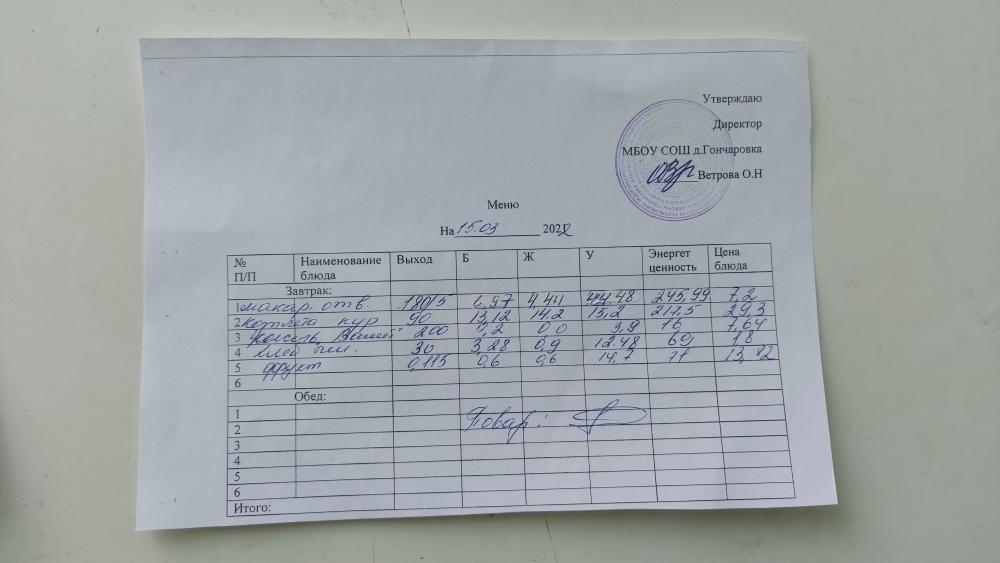 Утверждаю
Директор
МБОУ СОШ д.Гончаровка
Ветрова О.Н
Меню
На 15.03 2022
№ П/П Наименование блюда Выход Б Ж У Энергет ценность Цена блюда
Завтрак:
1 макар. отв. 180/5 6,97 4,44 44.48 245,99 7,2
2 котлета кур 90 13,12 14.2 15,2 214.5 29,3
3 кисель 200 0,2 0 0 3,9 76 7,64
4 хлеб пш. 30 3,28 0,9 12.48 69 1.8
5 фрукт 0,115 0,6 0,6 14,7 77 13,82
6
Обед:
1
2 Повар:
3
4
5
6
Итого: